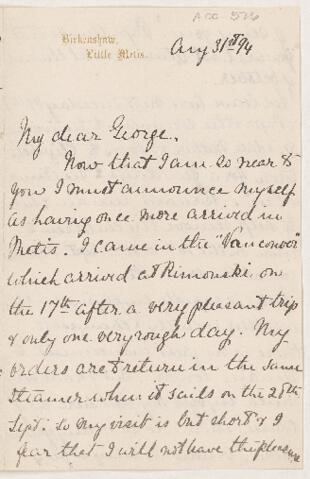 ACC 526
Birkenshaw,
Little Metis.
Aug 31st 94
My dear George,
Now that I am so near to
you I must announce myself
as having once more arrived in
Metis. I came in the "Vancouver"
which arrived at Rimouski on
the 17th after a very pleasant trip
& only one very rough day. My
orders are to return in the same
steamer when it sails on the 28th
Sept. so my visit is but short & I
fear that I will not have the pleasure